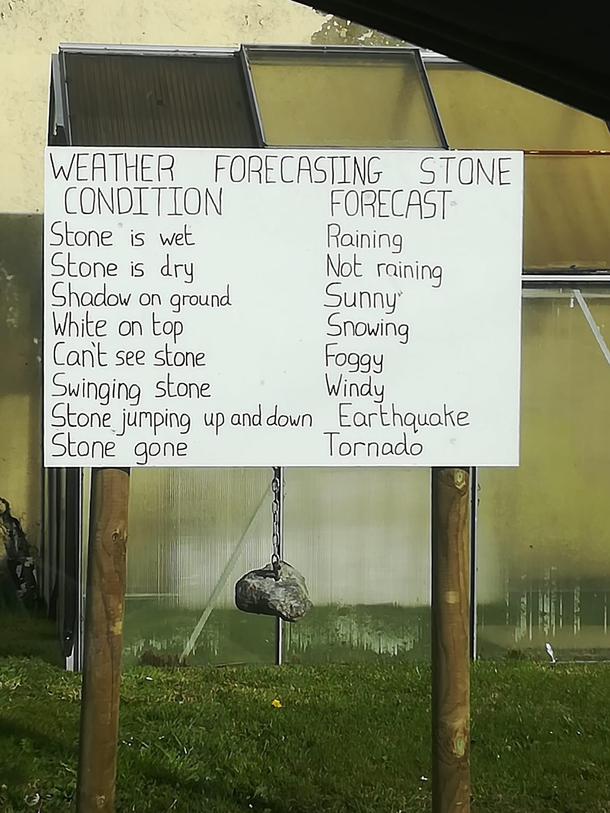 WEATHER FORECASTING STONE
CONDITION FORECAST
Stone is wet Raining
Stone is dry Not raining
Shadow on ground Sunny
White on top Snowing
Can't see stone Foggy
Swinging stone Windy
Stone jumping up and down Earthquake
Stone gone Tornado